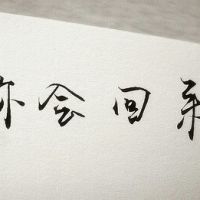 你会回来